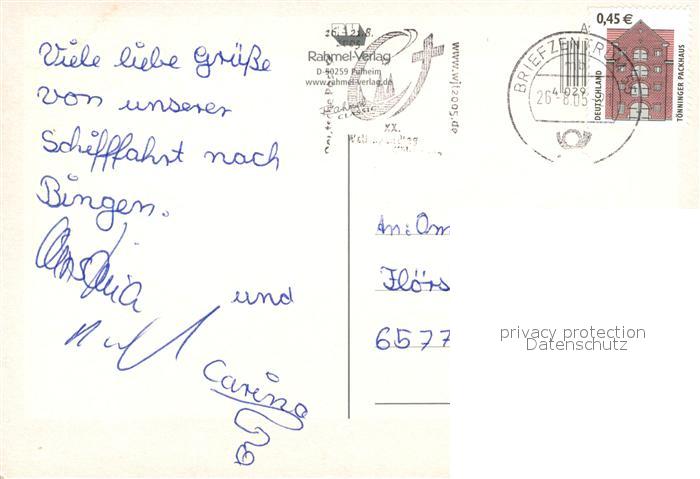 Viele liebe Grüße
von unserer
Schifffahrt nach
Bingen.
und
Carina
16.-21.8.
2005
Rahmel-Verlag
D-50259 Pulheim
www.rahmel-verlag.de
Rahmel
CLASSIC
XX.
www.wjt2005.de
BRIEFZENTRUM
26.-8.05
0,45 €
DEUTSCHLAND
TÖNNINGER PACKHAUS
An: Om
Flörs
6577
privacy protection
Datenschutz